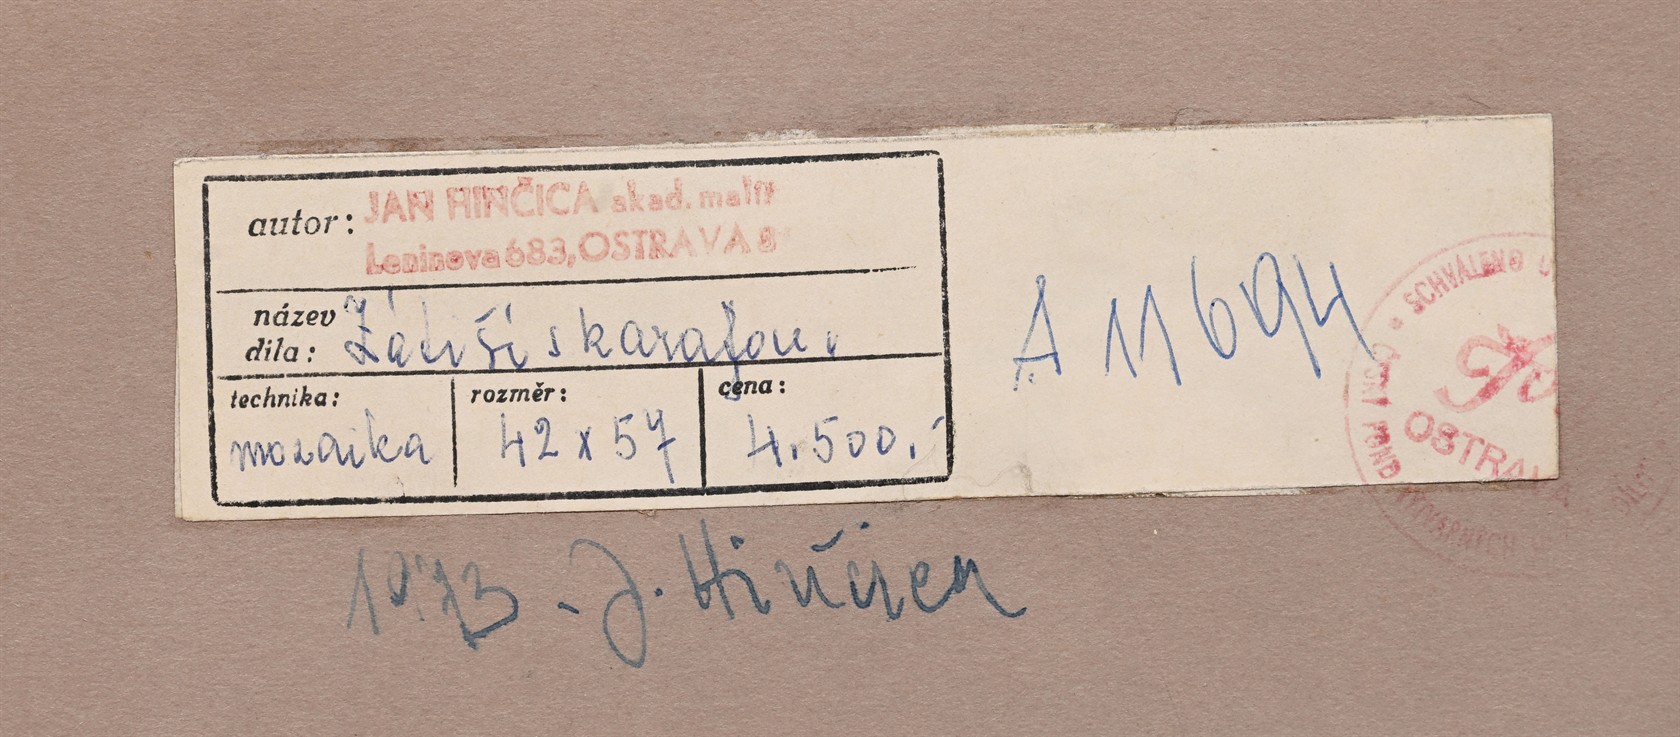 autor: JAN HINČICA akad. malíř
Leninova 683, OSTRAVA 8
název
díla: Zátiší s karafou.
technika: rozměr: cena:
mozaika 42 x 57 4.500.-
A 11694
SCHVÁLENO
OSTRAVA
ČESKÝ FOND VÝTVARNÝCH
1973 - J. Hinčica